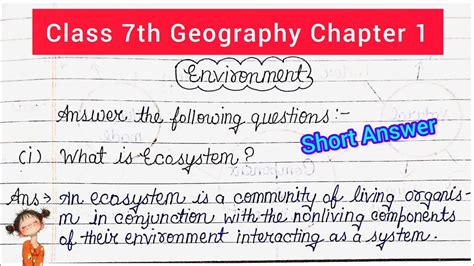 Class 7th Geography Chapter 1
Environment
Answer the following questions:-
Short Answer
(i) What is Ecosystem?
Ans→ An ecosystem is a community of living organis-
m in conjunction with the nonliving components
of their environment interacting as a system.